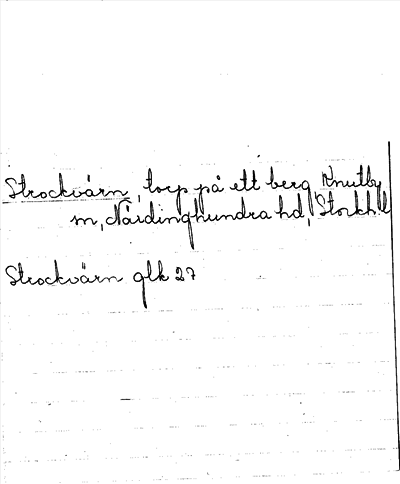 Strockvärn, torp på ett berg, Knutby
m, Näidinghundra hd, Storkh. l
Strockvärn glk 27